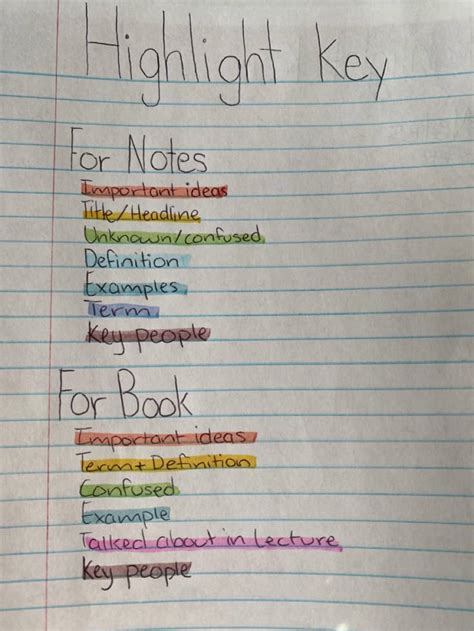 Highlight Key
For Notes
Important ideas
Title/Headline
Unknown/confused
Definition
Examples
Term
Key people
For Book
Important ideas
Term+Definition
Confused
Example
Talked about in Lecture
Key people